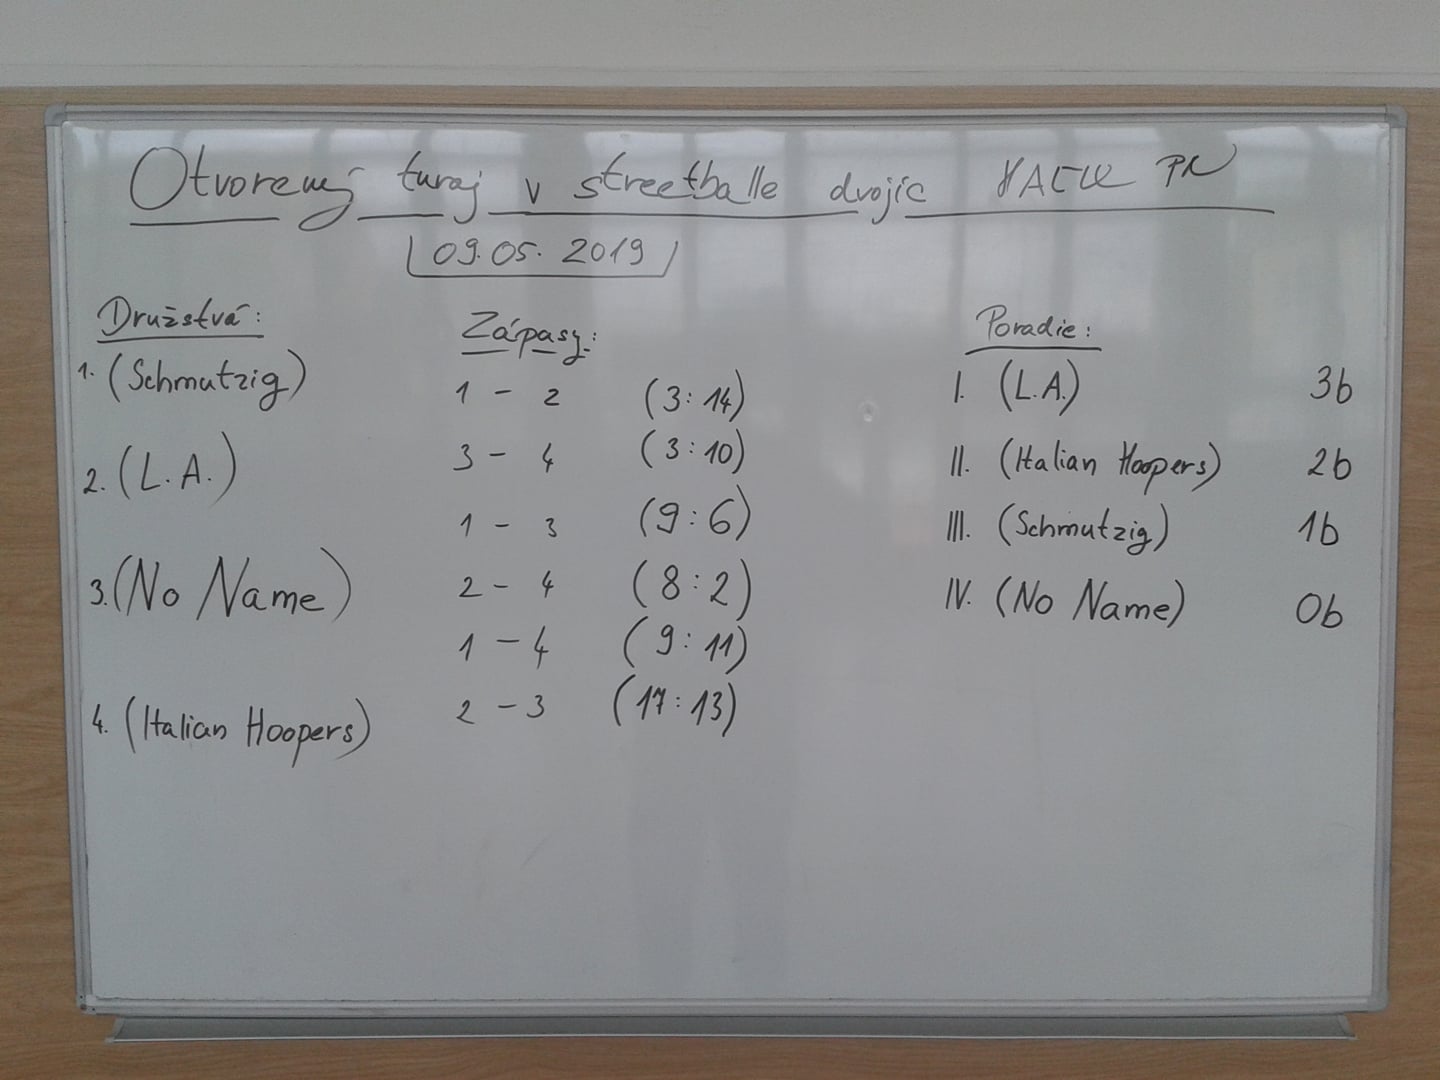 Otvorený turnaj v streetballe dvojíc
09.05.2019
Družstvá:
1. (Schmutzig)
2. (L.A.)
3. (No Name)
4. (Italian Hoopers)
Zápasy:
1 - 2 (3:14)
3 - 4 (3:10)
1 - 3 (9:6)
2 - 4 (8:2)
1 - 4 (9:11)
2 - 3 (17:13)
Poradie:
I. (L.A.) 3b
II. (Italian Hoopers) 2b
III. (Schmutzig) 1b
IV. (No Name) 0b